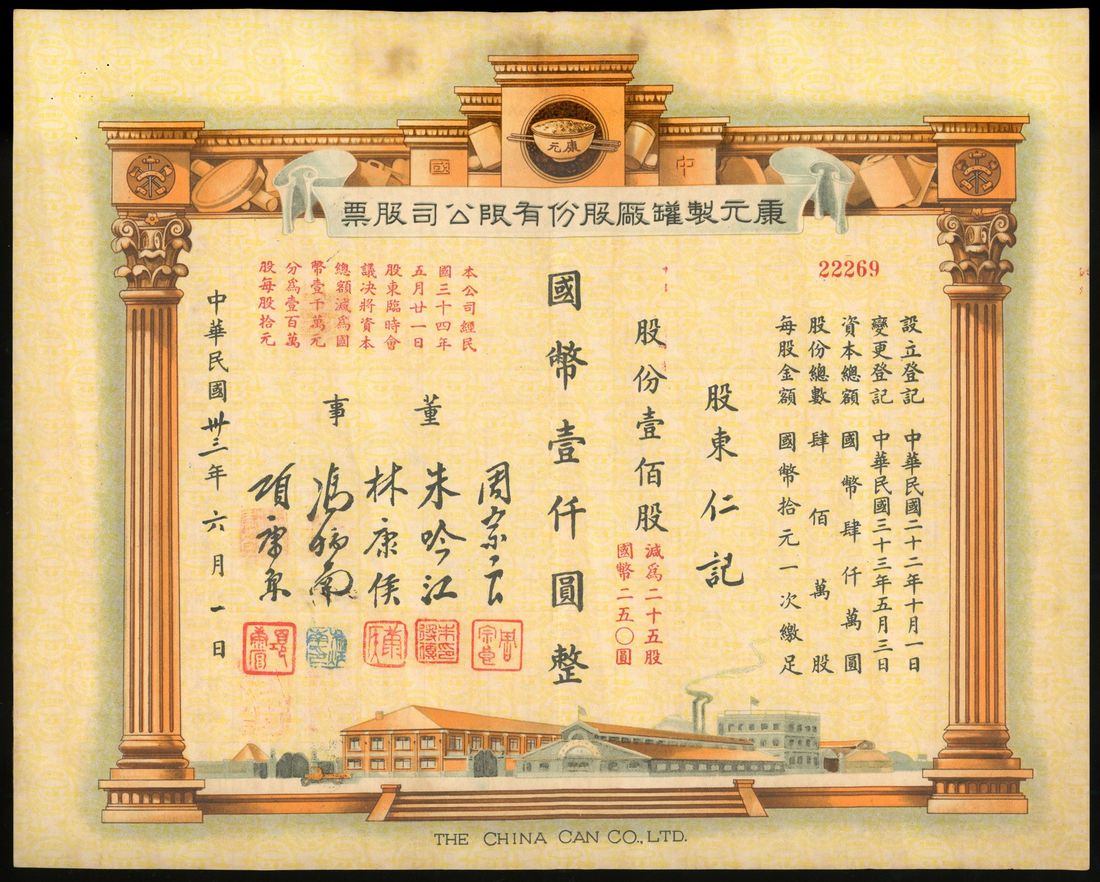 康元
中國
康元製罐廠股份有限公司股票
22269
設立登記 中華民國二十二年十月一日
變更登記 中華民國三十三年五月三日
資本總額 國幣肆仟萬圓
股份總數 肆佰萬股
每股金額 國幣拾元一次繳足
股東仁記
股份壹佰股
減爲二十五股
國幣二五〇圓
國幣壹仟圓整
本公司經民
國三十四年
五月廿一日
股東臨時會
議决將資本
總額減爲國
幣壹千萬元
分爲壹百萬
股每股拾元
董事
朱吟江
林康侯
馮炳南
項康原
中華民國卅三年六月一日
THE CHINA CAN CO., LTD.